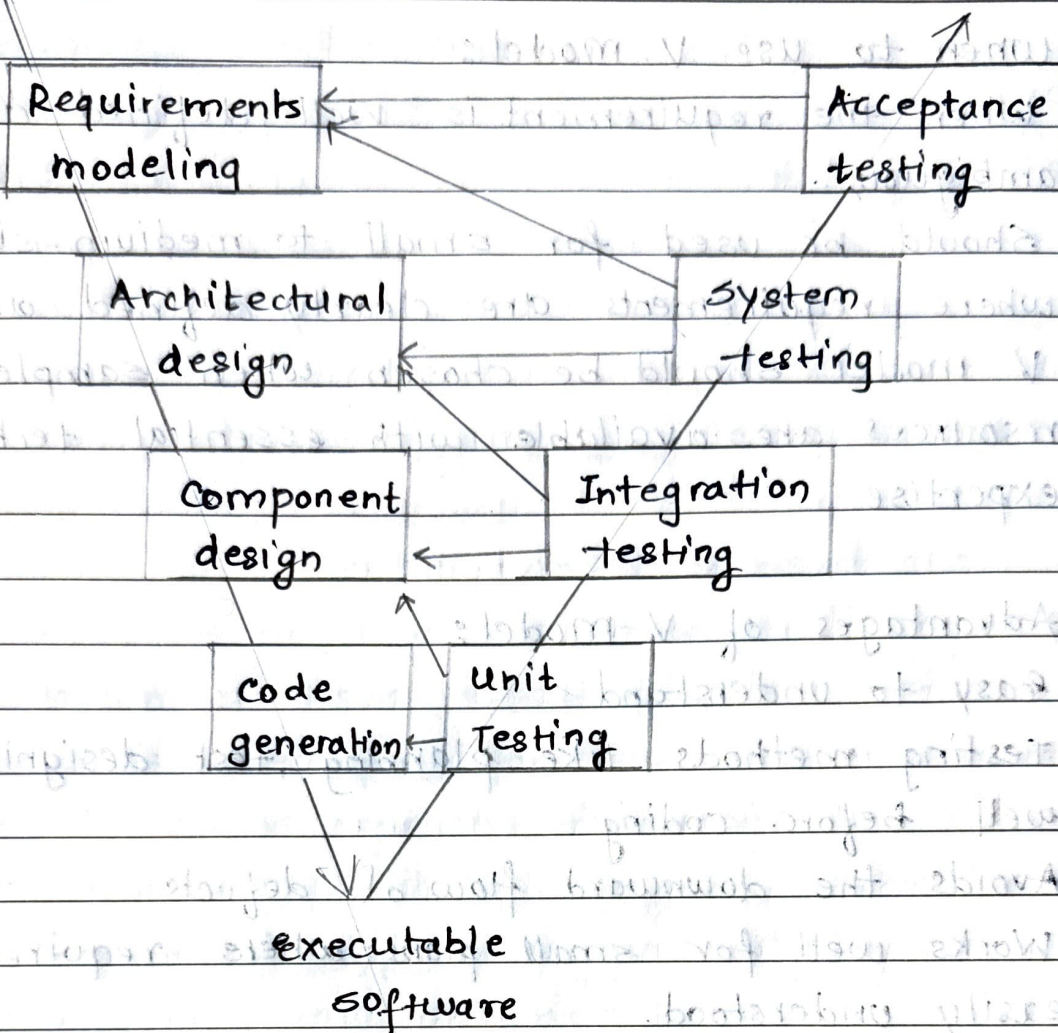 Requirements
modeling
Acceptance
testing
Architectural
design
System
testing
Component
design
Integration
testing
code
generation
Unit
Testing
executable
software